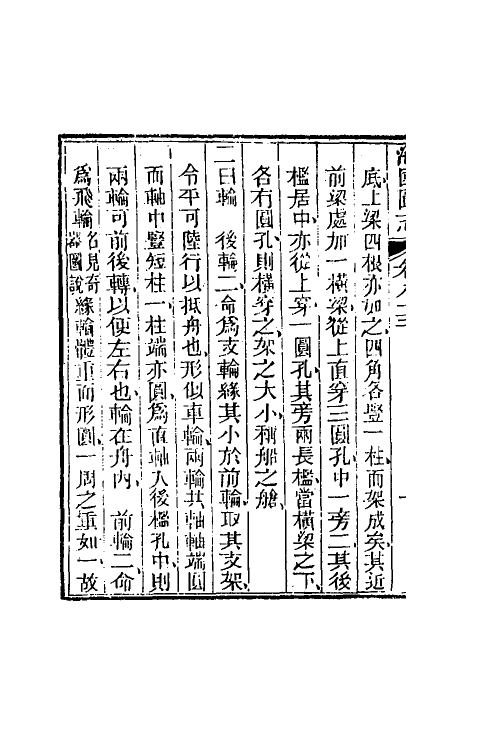 海國圖志 卷八十三
底上梁四根亦如之四角各豎一柱而架成矣其近
前梁處加一橫梁從上面穿三圓孔中一旁二其後
檻居中亦從上穿一圓孔其旁兩長檻當橫梁之下
各有圓孔則橫穿之架之大小稱船之艙
二曰輪 後輪二命爲支輪緣其小於前輪取其支架
令平可陸行以抵舟也形似車輪兩輪共軸軸端圓
而軸中豎短柱一柱端亦圓爲直軸入後檻孔中則
兩輪可前後轉以便左右也輪在舟內 前輪二命
爲飛輪名見奇器圖說緣輪體重而形圓一周之重如一故